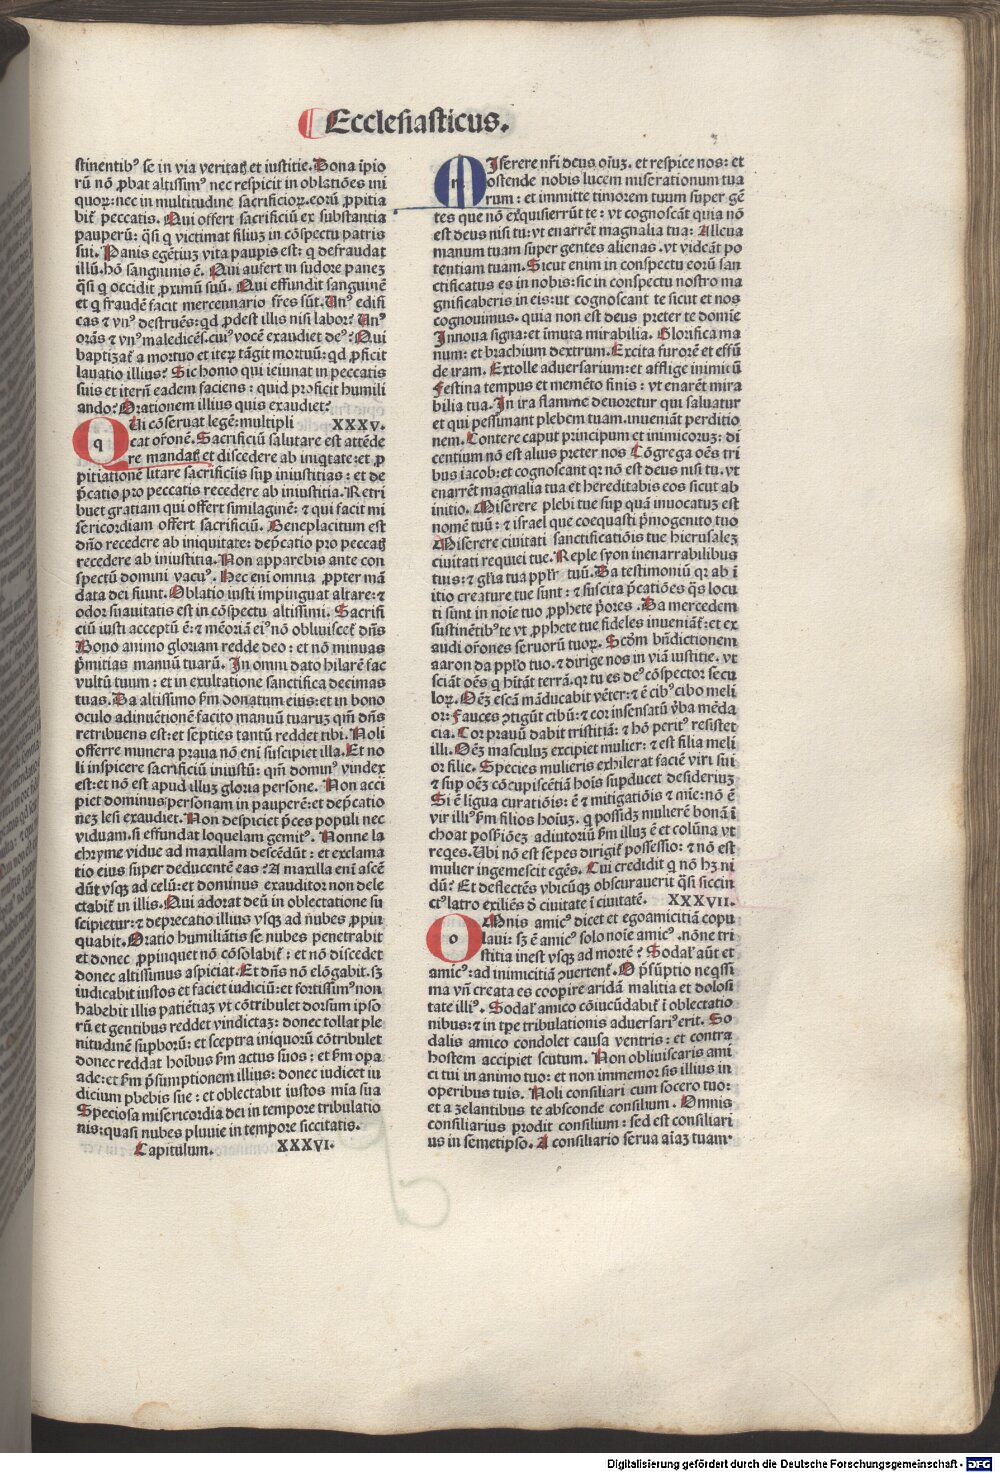 Ecclesiasticus.
stinentibꝰ se in via veritatꝭ et iusticie. Dona ipio
rū nō ꝓbat altissimꝰ nec respicit in oblatiōes ini
quoꝝ: nec in multitudine sacrificioꝝ eorū ꝓpitia
bit᷑ peccatis. Qui offert sacrificiū ex substantia
pauperū: q̄si q victimat filiuꝫ in cōspectu patris
sui. Panis egētiuꝫ vita paupis est: q defraudat
illū. hō sanguinis ē. Qui aufert in sudore paneꝫ
q̄si q occidit ꝓximū suū. Qui effundit sanguinē
et q fraudē facit mercennario fr̄es sūt. Unꝰ edifi
cas ⁊ vnꝰ destruēs: qd ꝓdest illis nisi labor? Unꝰ
orās ⁊ vnꝰ maledicēs. cuiꝰ vocē exaudiet deꝰ? Qui
baptizat᷑ a mortuo et iteꝝ tāgit mortuū: qd ꝓficit
lauatio illius? Sic homo qui ieiunat in peccatis
suis et iterū eadem faciens: quid proficit humili
ando? Orationem illius quis exaudiet?
Ui cōseruat legē: multipli XXXV.
q cat or̄onē. Sacrificiū salutare est attēde
re mandatꝭ et discedere ab iniqtate: et ꝓ
pitiationē litare sacrificiis sup iniustitias: et de
p̄catio pro peccatis recedere ab iniustitia. Retri
buet gratiam qui offert similaginē: ⁊ qui facit mi
sericordiam offert sacrificiū. Beneplacitum est
dn̄o recedere ab iniquitate: dep̄catio pro peccatꝭ
recedere ab iniustitia. Non apparebis ante con
spectū domini vacuꝰ. Hec eni omnia ꝓpter mā
data dei fiunt. Oblatio iusti impinguat altare: ⁊
odor suauitatis est in cōspectu altissimi. Sacrifi
ciū iusti acceptū ē: ⁊ mēoriā eiꝰ nō obliuiscet᷑ dn̄s
Bono animo gloriam redde deo: et nō minuas
p̄mitias manuū tuarū. In omni dato hilarē fac
vultū tuum: et in exultatione sanctifica decimas
tuas. Da altissimo ẜm donatum eius: et in bono
oculo adinuētionē facito manuū tuaruꝫ qm̄ dn̄s
retribuens est: et septies tantū reddet tibi. Noli
offerre munera praua nō eni suscipiet illa. Et no
li inspicere sacrificiū iniustū: qm̄ dominꝰ vindex
est: et nō est apud illuꝫ gloria persone. Non acci
piet dominus personam in pauperē: et dep̄catio
neꝫ lesi exaudiet. Non despiciet p̄ces populi nec
viduam. si effundat loquelam gemitꝰ. Nonne la
chryme vidue ad maxillam descēdūt: et exclama
tio eius super deducentē eas? A maxilla eni ascē
dūt vsqꝫ ad celū: et dominus exauditor non dele
ctabit᷑ in illis. Qui adorat deū in oblectatione su
scipietur: ⁊ deprecatio illius vsqꝫ ad nubes ꝓpin
quabit. Oratio humiliātis se nubes penetrabit
et donec ꝓpinquet nō cōsolabit᷑: et nō discedet
donec altissimus aspiciat. Et dn̄s nō elōgabit. sꝫ
iudicabit iustos et faciet iudiciū: et fortissimꝰ non
habebit illis patiētiaꝫ vt cōtribulet dorsum ipso
rū et gentibus reddet vindictaꝫ: donec tollat ple
nitudinē supborū: et sceptra iniquorū cōtribulet
donec reddat hoibus ẜm actus suos: et ẜm opa
ade: et ẜm p̄sumptionem illius: donec iudicet iu
dicium plebis sue: et oblectabit iustos mīa sua
Speciosa misericordia dei in tempore tribulatio
nis: quasi nubes pluuie in tempore siccitatis.
Capitulum. XXXVI.
Iserere nr̄i deus oīuꝫ. et respice nos: et
m ostende nobis lucem miserationum tua
rum: et immitte timorem tuum super gē
tes que nō exquisierrūt te: vt cognoscāt quia nō
est deus nisi tu: vt enarrēt magnalia tua: Alleua
manum tuam super gentes alienas. vt videāt po
tentiam tuam. Sicut enim in conspectu eorū san
ctificatus es in nobis: sic in conspectu nostro ma
gnificaberis in eis: ut cognoscant te sicut et nos
cognouimus. quia non est deus preter te domīe
Innoua signa: et imuta mirabilia. Glorifica ma
num: et brachium dextrum. Excita furorē et effū
de iram. Extolle aduersarium: et afflige inimicū
Festina tempus et memēto finis: vt enarēt mira
bilia tua. In ira flamme deuoretur qui saluatur
et qui pessimant plebem tuam. inueniāt perditio
nem. Contere caput principum et inimicoruꝫ: di
centium nō est alius preter nos Cōgrega oēs tri
bus iacob: et cognoscant qꝛ nō est deus nisi tu. vt
enarrēt magnalia tua et hereditabis eos sicut ab
initio. Miserere plebi tue sup quā inuocatuꝫ est
nomē tuū: ⁊ israel que coequasti p̄mogenito tuo
Miserere ciuitati sanctificatiōis tue hierusaleꝫ
ciuitati requiei tue. Reple syon inenarrabilibus
tuis: ⁊ gl̄ia tua ppl̄m tuū. Da testimoniū qꝛ ab i
itio creature tue sunt: ⁊ suscita p̄catiōes q̄s locu
ti sunt in noie tuo ꝓphete p̄ores. Da mercedem
sustinētibꝰ te vt ꝓphete tue fideles inueniāt᷑: et ex
audi or̄ones seruorū tuoꝝ. Scd̄m bn̄dictionem
aaron da ppl̄o tuo. ⁊ dirige nos in viā iusticie. vt
sciāt oēs q hītāt terrā. qꝛ tu es deꝰ cōspector secu
loꝝ. Oēꝫ escā māducabit vēter: ⁊ ē cibꝰ cibo meli
or: Fauces ꝯtigūt cibū: ⁊ cor insensatū v̄ba mēda
cia. Cor prauū dabit tristitiā: ⁊ hō peritꝰ resistet
illi. Oēꝫ masculuꝫ excipiet mulier: ⁊ est filia meli
or filie. Species mulieris exhilerat faciē viri sui
⁊ sup oēꝫ cōcupiscētiā hoīs supducet desideriuꝫ
Si ē ligua curatiōis: ē ⁊ mitigatiōis ⁊ mīe: nō ē
vir illiꝰ ẜm filios hoiuꝫ. q possidꝫ mulierē bonā i
choat possiōeꝫ adiutoriū ẜm illuꝫ ē et colūna vt
reqes. Ubi nō est sepes dirigit᷑ possessio: ⁊ nō est
mulier ingemescit egēs. Cui credidit q nō hꝫ ni
dū? Et deflectēs vbicūqꝫ obscurauerit q̄si siccin
ctꝰ latro exiliēs d̄ ciuitate i ciuitatē. XXXVII.
Omnis amicꝰ dicet et ego amicitiā copu
o laui: sꝫ ē amicꝰ solo noie amicꝰ. nōne tri
stitia inest vsqꝫ ad mortē? Sodal᷑ aūt et
amicꝰ: ad inimicitiā ꝯuertent᷑. O p̄sūptio neqssi
ma vn̄ creata es coopire aridā malitia et dolosi
tate illiꝰ. Sodal᷑ amico cōiucūdabit᷑ i oblectatio
nibus: ⁊ in tpe tribulationis aduersariꝰ erit. So
dalis amico condolet causa ventris: et contra
hostem accipiet scutum. Non obliuiscaris ami
ci tui in animo tuo: et non immemor sis illius in
operibus tuis. Noli consiliari cum socero tuo:
et a zelantibus te absconde consilium. Omnis
consiliarius prodit consilium: sed est consiliari
us in semetipso. A consiliario serua aīaꝫ tuam.
Digitalisierung gefördert durch die Deutsche Forschungsgemeinschaft - DFG